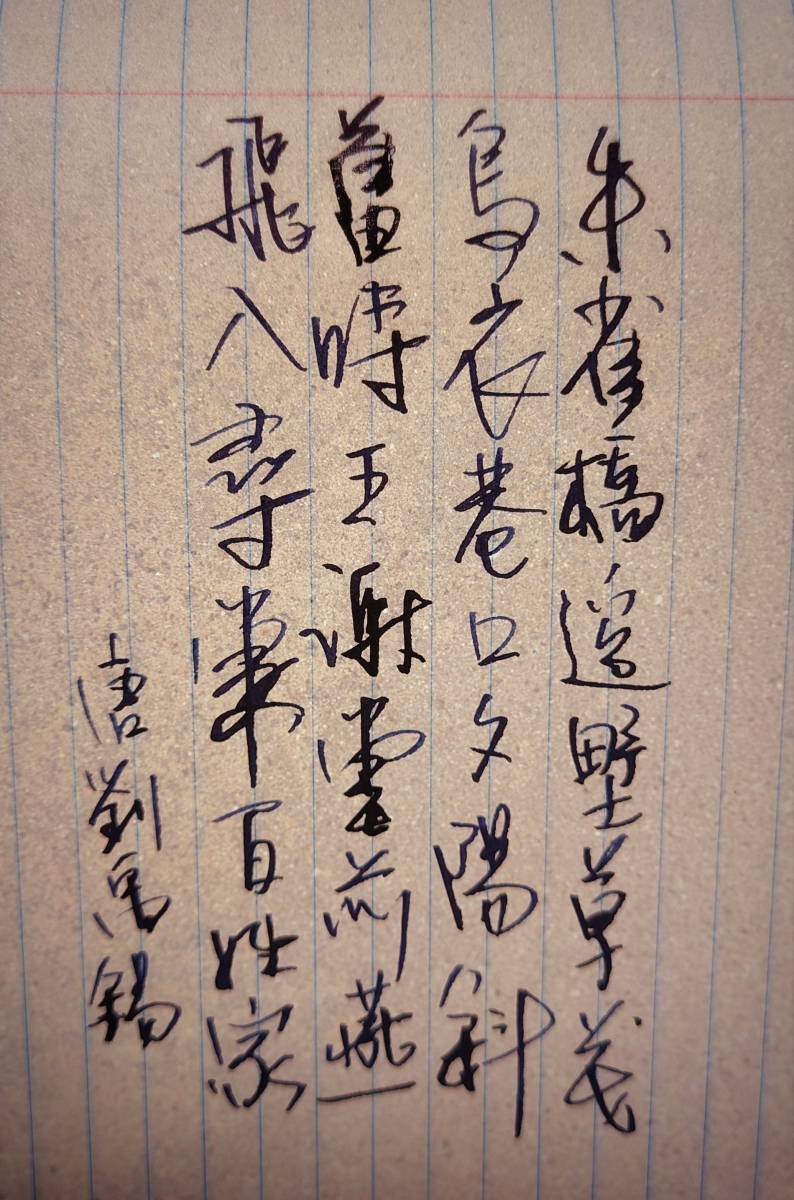 朱雀橋邊野草花
烏衣巷口夕陽斜
舊時王謝堂前燕
飛入尋常百姓家
唐劉禹錫